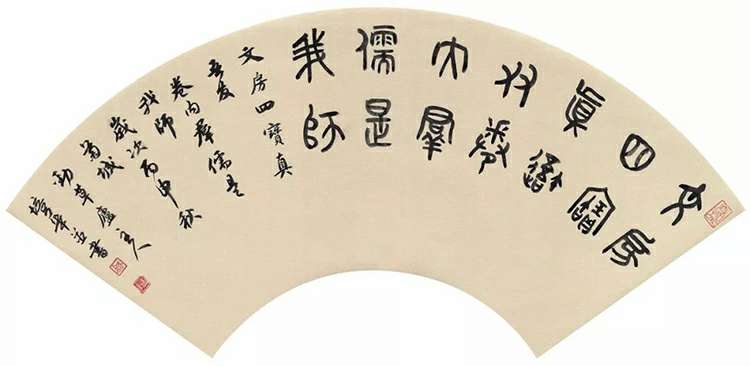 文房
四寶
真吾
友卷
內羣
儒是
我師
文房四寶真
吾友
卷内羣儒是
我師
歲次丙申秋
城
草廬主人
並書